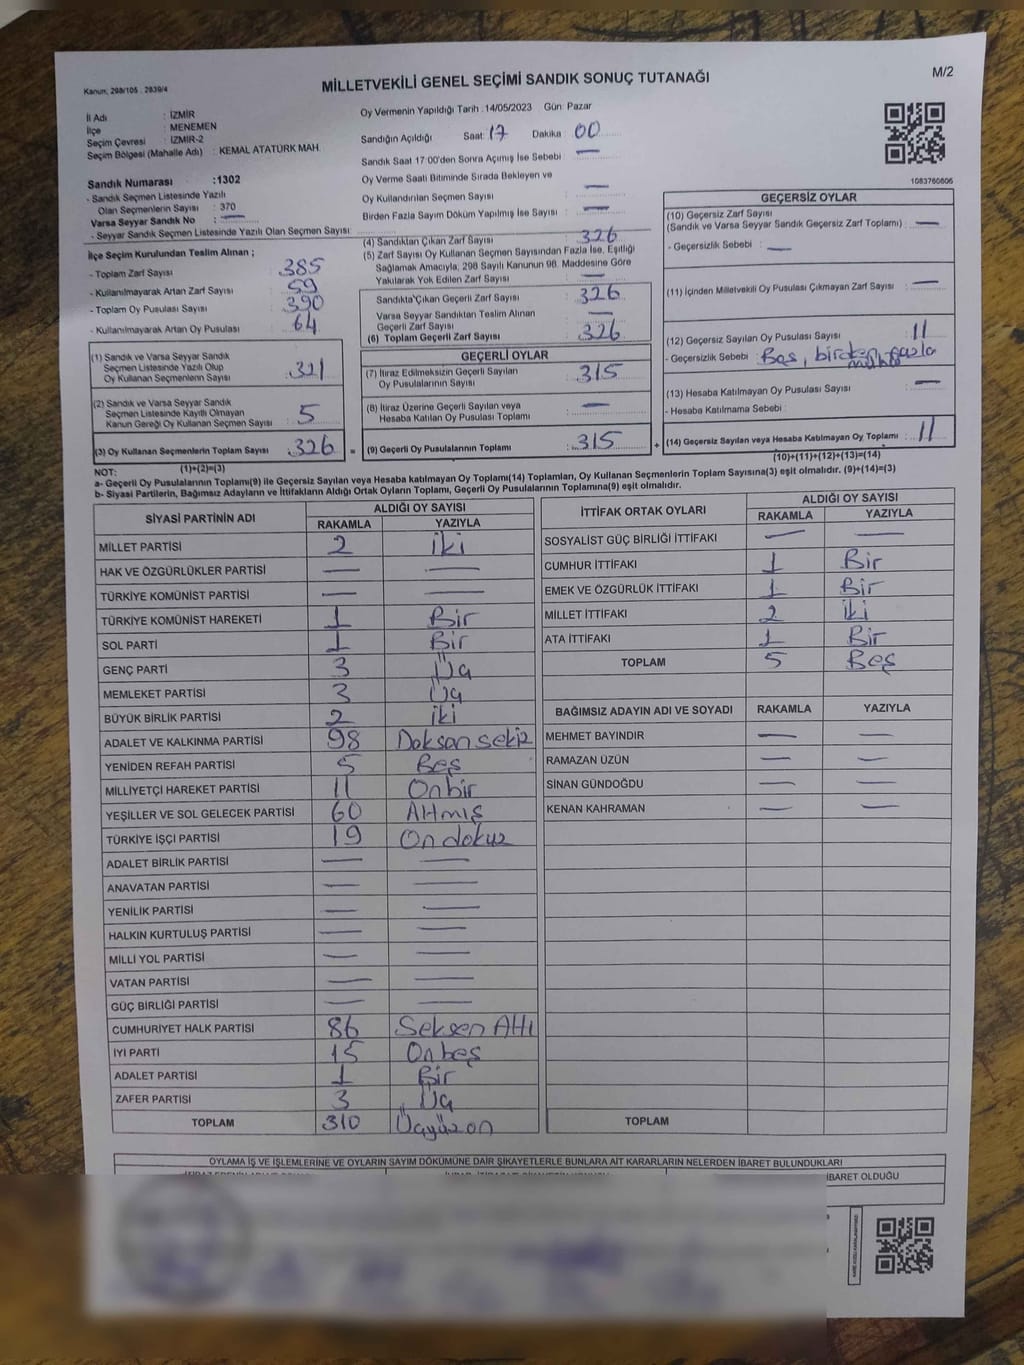 Kanun, 298/105 . 2839/4
MİLLETVEKİLİ GENEL SEÇİMİ SANDIK SONUÇ TUTANAĞI
M/2
İl Adı : İZMİR
İlçe : MENEMEN
Seçim Çevresi : İZMİR-2
Seçim Bölgesi (Mahalle Adı) : KEMAL ATATÜRK MAH.
Oy Vermenin Yapıldığı Tarih : 14/05/2023 Gün: Pazar
Sandığın Açıldığı Saat: 17 Dakika: 00
Sandık Saat 17:00'den Sonra Açımış İse Sebebi : —
Oy Verme Saati Bitiminde Sırada Bekleyen ve
Oy Kullandırılan Seçmen Sayısı : —
Birden Fazla Sayım Döküm Yapılmış İse Sayısı : —
1083760806
Sandık Numarası :1302
- Sandık Seçmen Listesinde Yazılı
Olan Seçmenlerin Sayısı : 370
Varsa Seyyar Sandık No : —
- Seyyar Sandık Seçmen Listesinde Yazılı Olan Seçmen Sayısı:
İlçe Seçim Kurulundan Teslim Alınan ;
- Toplam Zarf Sayısı : 385
- Kullanılmayarak Artan Zarf Sayısı : 59
- Toplam Oy Pusulası Sayısı : 390
- Kullanılmayarak Artan Oy Pusulası : 64
(1) Sandık ve Varsa Seyyar Sandık
Seçmen Listesinde Yazılı Olup
Oy Kullanan Seçmenlerin Sayısı : 321
(2) Sandık ve Varsa Seyyar Sandık
Seçmen Listesinde Kayıtlı Olmayan
Kanun Gereği Oy Kullanan Seçmen Sayısı : 5
(3) Oy Kullanan Seçmenlerin Toplam Sayısı : 326
(4) Sandıktan Çıkan Zarf Sayısı : 326
(5) Zarf Sayısı Oy Kullanan Seçmen Sayısından Fazla İse, Eşitliği
Sağlamak Amacıyla; 298 Sayılı Kanunun 98. Maddesine Göre
Yakılarak Yok Edilen Zarf Sayısı : —
Sandıkta Çıkan Geçerli Zarf Sayısı : 326
Varsa Seyyar Sandıktan Teslim Alınan
Geçerli Zarf Sayısı : —
(6) Toplam Geçerli Zarf Sayısı : 326
GEÇERLİ OYLAR
(7) İtiraz Edilmeksizin Geçerli Sayılan
Oy Pusulalarının Sayısı : 315
(8) İtiraz Üzerine Geçerli Sayılan veya
Hesaba Katılan Oy Pusulası Toplamı : —
= (9) Geçerli Oy Pusulalarının Toplamı : 315
GEÇERSİZ OYLAR
(10) Geçersiz Zarf Sayısı
(Sandık ve Varsa Seyyar Sandık Geçersiz Zarf Toplamı) : —
- Geçersizlik Sebebi : —
(11) İçinden Milletvekili Oy Pusulası Çıkmayan Zarf Sayısı : —
(12) Geçersiz Sayılan Oy Pusulası Sayısı : 11
- Geçersizlik Sebebi : Boş, birden fazla
(13) Hesaba Katılmayan Oy Pusulası Sayısı : —
- Hesaba Katılmama Sebebi :
+ (14) Geçersiz Sayılan veya Hesaba Katılmayan Oy Toplamı : 11
(10)+(11)+(12)+(13)=(14)
NOT: (1)+(2)=(3)
a- Geçerli Oy Pusulalarının Toplamı(9) ile Geçersiz Sayılan veya Hesaba katılmayan Oy Toplamı(14) Toplamları, Oy Kullanan Seçmenlerin Toplam Sayısına(3) eşit olmalıdır. (9)+(14)=(3)
b- Siyasi Partilerin, Bağımsız Adayların ve İttifakların Aldığı Ortak Oyların Toplamı, Geçerli Oy Pusulalarının Toplamına(9) eşit olmalıdır.
SİYASİ PARTİNİN ADI ALDIĞI OY SAYISI
RAKAMLA YAZIYLA
MİLLET PARTİSİ 2 İki
HAK VE ÖZGÜRLÜKLER PARTİSİ — —
TÜRKİYE KOMÜNİST PARTİSİ — —
TÜRKİYE KOMÜNİST HAREKETİ 1 Bir
SOL PARTİ 1 Bir
GENÇ PARTİ 3 Üç
MEMLEKET PARTİSİ 3 Üç
BÜYÜK BİRLİK PARTİSİ 2 İki
ADALET VE KALKINMA PARTİSİ 98 Doksan sekiz
YENİDEN REFAH PARTİSİ 5 Beş
MİLLİYETÇİ HAREKET PARTİSİ 11 Onbir
YEŞİLLER VE SOL GELECEK PARTİSİ 60 Altmış
TÜRKİYE İŞÇİ PARTİSİ 19 On dokuz
ADALET BİRLİK PARTİSİ — —
ANAVATAN PARTİSİ — —
YENİLİK PARTİSİ — —
HALKIN KURTULUŞ PARTİSİ — —
MİLLİ YOL PARTİSİ — —
VATAN PARTİSİ — —
GÜÇ BİRLİĞİ PARTİSİ — —
CUMHURİYET HALK PARTİSİ 86 Seksen Altı
İYİ PARTİ 15 Onbeş
ADALET PARTİSİ 1 Bir
ZAFER PARTİSİ 3 Üç
TOPLAM 310 Üçyüz on
İTTİFAK ORTAK OYLARI ALDIĞI OY SAYISI
RAKAMLA YAZIYLA
SOSYALİST GÜÇ BİRLİĞİ İTTİFAKI — —
CUMHUR İTTİFAKI 1 Bir
EMEK VE ÖZGÜRLÜK İTTİFAKI 1 Bir
MİLLET İTTİFAKI 2 İki
ATA İTTİFAKI 1 Bir
TOPLAM 5 Beş
BAĞIMSIZ ADAYIN ADI VE SOYADI RAKAMLA YAZIYLA
MEHMET BAYINDIR — —
RAMAZAN ÜZÜN — —
SİNAN GÜNDOĞDU — —
KENAN KAHRAMAN — —
TOPLAM
OYLAMA İŞ VE İŞLEMLERİNE VE OYLARIN SAYIM DÖKÜMÜNE DAİR ŞİKAYETLERLE BUNLARA AİT KARARLARIN NELERDEN İBARET BULUNDUKLARI
İBARET OLDUĞU